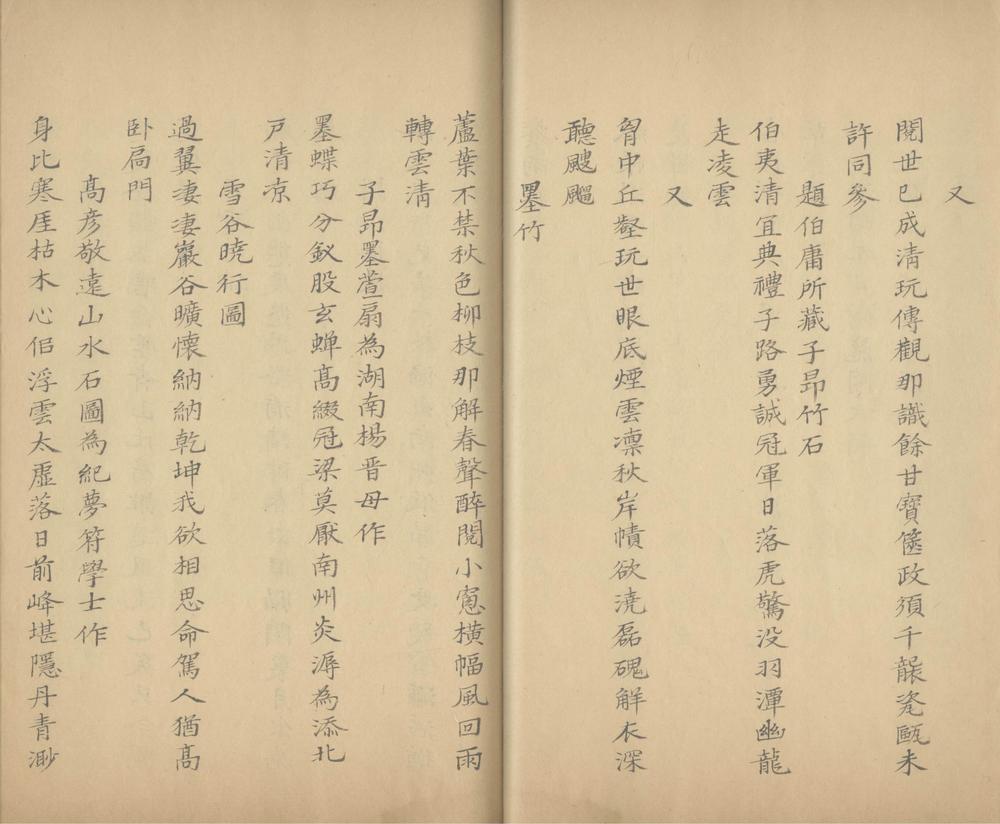 又
閱世已成清玩傳觀那識餘甘寶篋政須千襲瓷甌未
許同參
題伯庸所藏子昂竹石
伯夷清宜典禮子路勇誠冠軍日落虎驚没羽潭幽龍
走凌雲
又
胷中丘壑玩世眼底煙雲凛秋岸幘欲澆磊磈解衣深
聽颼飀
墨竹
蘆葉不禁秋色柳枝那解春聲醉閱小窻橫幅風回雨
轉雲清
子昂墨萱扇為湖南楊晋母作
墨蝶巧分釵股玄蟬髙綴冠梁莫厭南州炎溽為添北
戸清凉
雪谷曉行圖
過翼凄凄巖谷曠懷納納乾坤我欲相思命駕人猶髙
卧扃門
髙彦敬遠山水石圖為紀夢符學士作
身比寒厓枯木心侣浮雲太虛落日前峰堪隱丹青渺